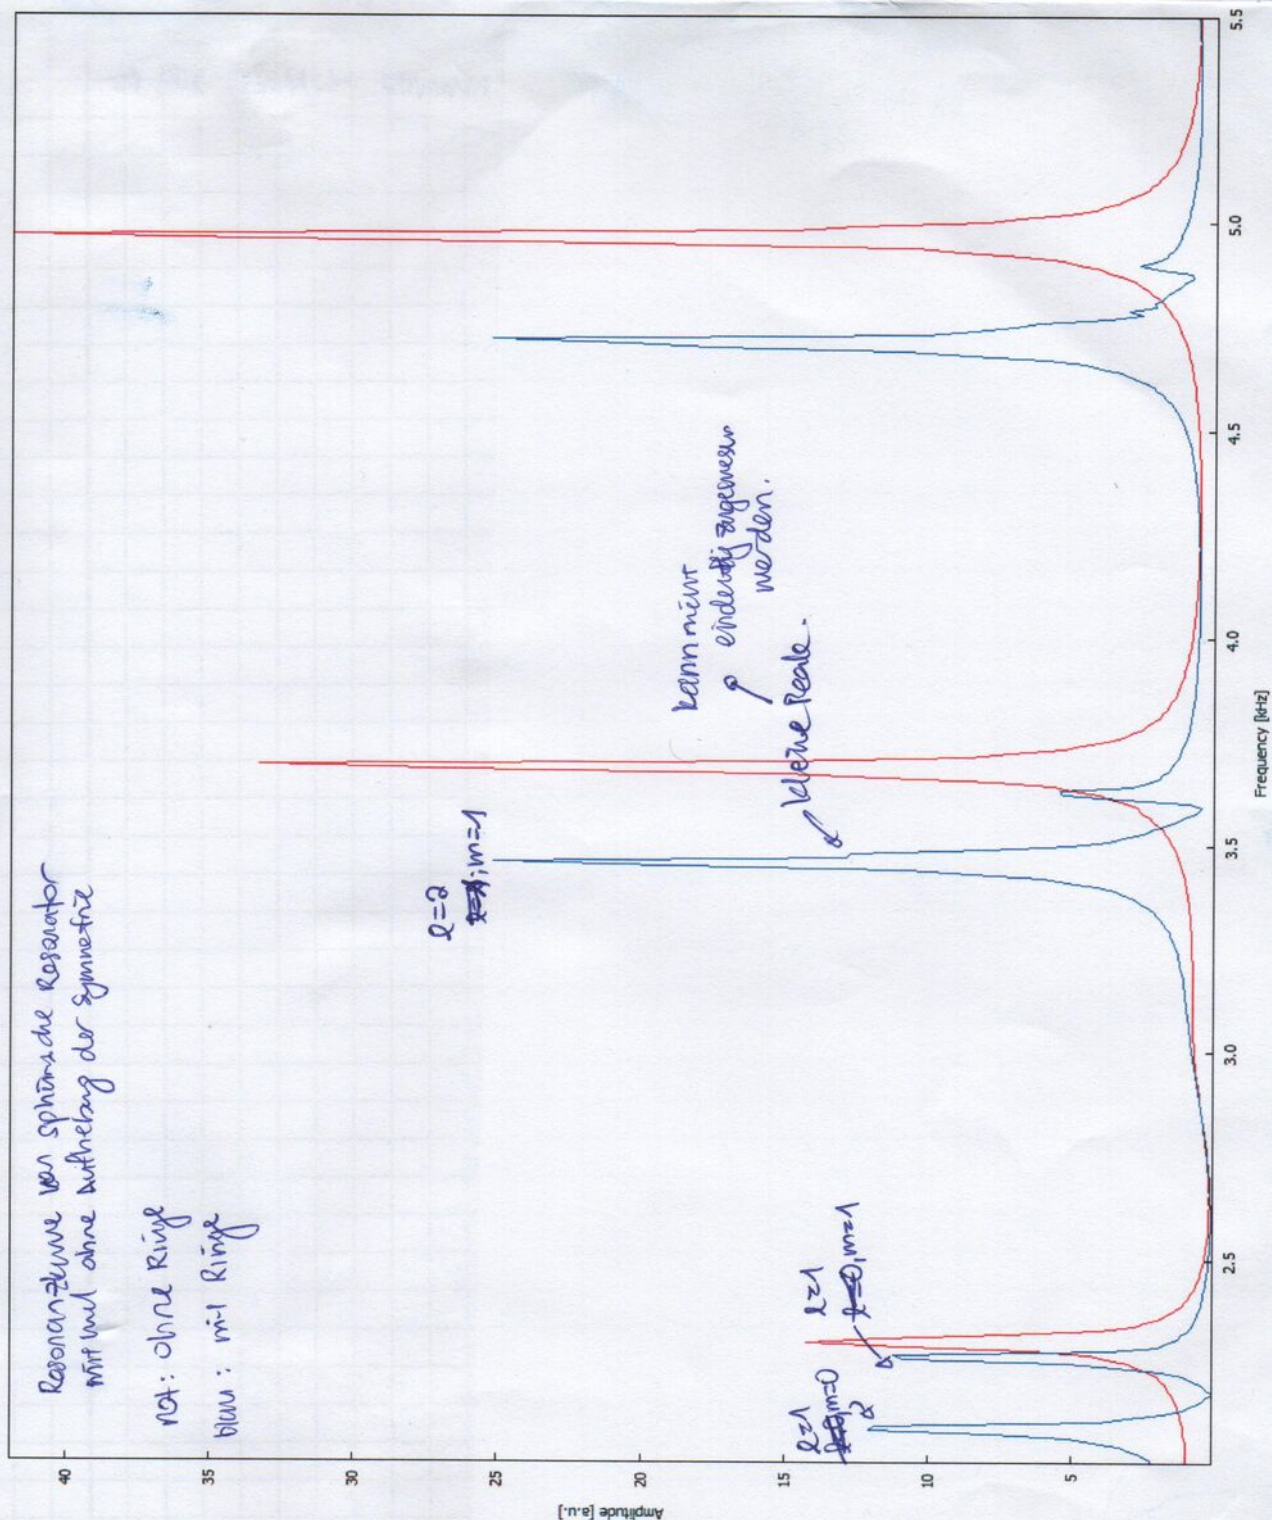 Resonanzkurve von sphärische Resonator
mit und ohne Aufhebung der Symmetrie
rot: ohne Ringe
blau: mit Ringe
l=2
; m=1
kann nicht
eindeutig zugewiesen
werden.
kleine Peak.
l=1
l=0, m=1
l=1
, m=0
Amplitude [a.u.]
40
35
30
25
20
15
10
5
2.5
3.0
3.5
4.0
4.5
5.0
5.5
Frequency [kHz]